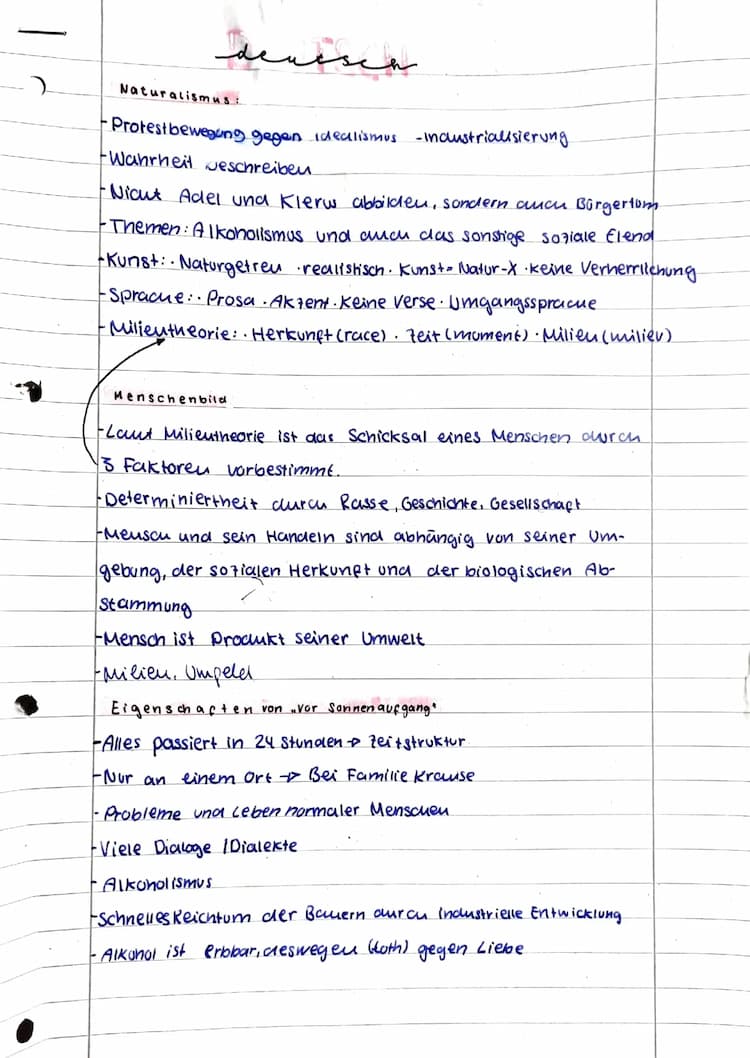 deutsch
Naturalismus:
- Protestbewegung gegen idealismus - industrialisierung
- Wahrheit beschreiben
- Nicht Adel und Klerus abbilden, sondern auch Bürgertum
- Themen: Alkoholismus und auch das sonstige soziale Elend
- Kunst: · Naturgetreu · realistisch · Kunst = Natur - X · keine Verherrlichung
- Sprache: · Prosa · Akzent · Keine Verse · Umgangssprache
- Milieutheorie: · Herkunft (race) · Zeit (moment) · Milieu (milieu)
Menschenbild
- Laut Milieutheorie ist das Schicksal eines Menschen durch
3 Faktoren vorbestimmt.
- Determiniertheit durch Rasse, Geschichte, Gesellschaft
- Mensch und sein Handeln sind abhängig von seiner Um-
gebung, der sozialen Herkunft und der biologischen Ab-
stammung
- Mensch ist Produkt seiner Umwelt
- Milieu, Umfeld
Eigenschaften von „Vor Sonnenaufgang"
- Alles passiert in 24 Stunden → Zeitstruktur
- Nur an einem Ort → Bei Familie Krause
- Probleme und Leben normaler Menschen
- Viele Dialoge / Dialekte
- Alkoholismus
- Schnelles Reichtum der Bauern durch industrielle Entwicklung
- Alkohol ist erbbar, deswegen (Loth) gegen Liebe